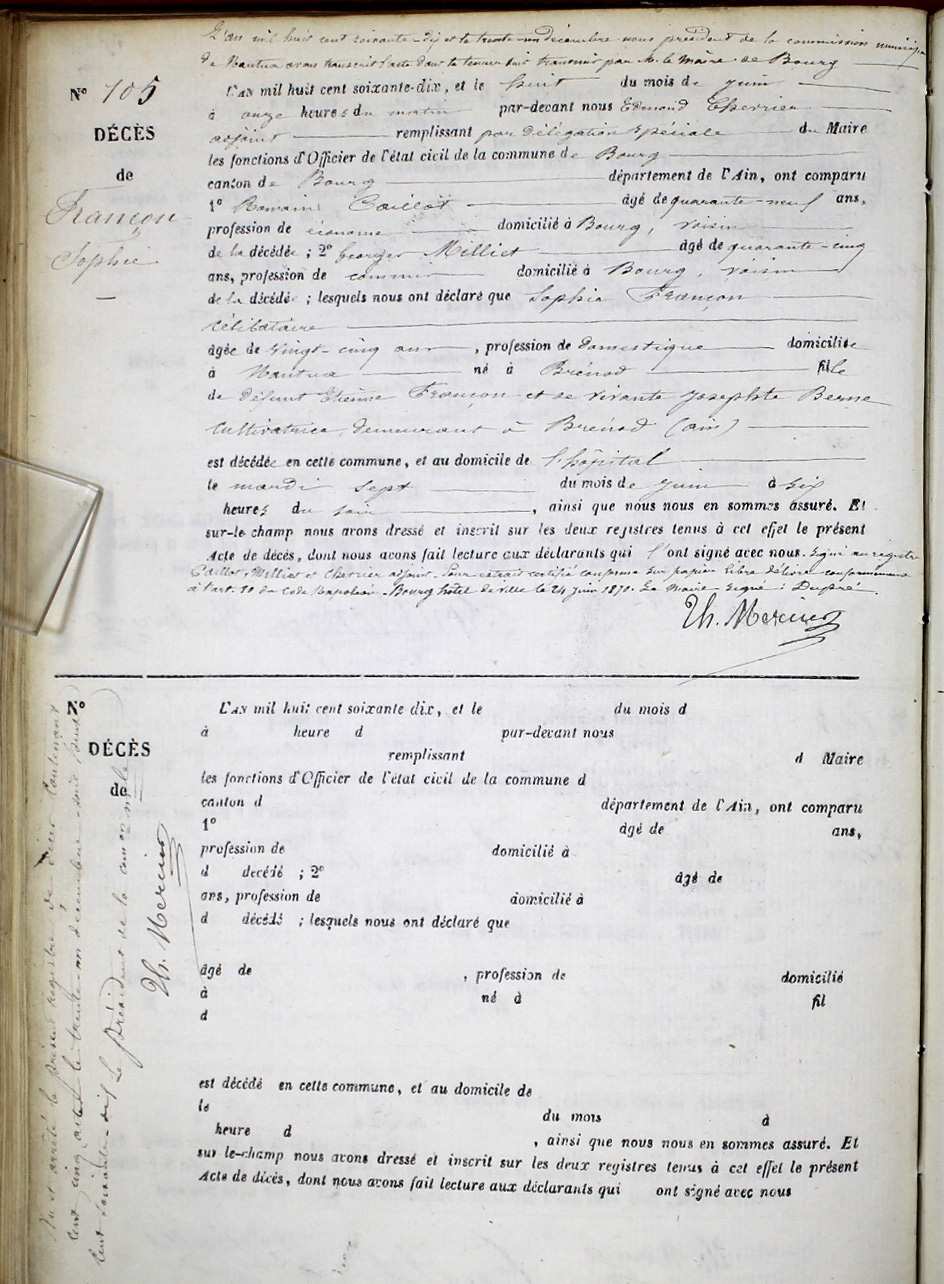 L'an mil huit cent soixante-dix et le trente-un décembre nous président de la commission municipale
de Nantua avons transcrit l'acte dont la teneur suit transmis par M. le Maire de Bourg
N° 105
L'AN mil huit cent soixante-dix, et le huit du mois de juin
à onze heures du matin par-devant nous Edmond Chervier
DÉCÈS
adjoint remplissant par délégation spéciale du Maire
les fonctions d'Officier de l'état civil de la commune de Bourg
de
canton de Bourg département de l'Ain, ont comparu
Françon
1° Romain Caillot âgé de quarante-neuf ans,
profession de économe domicilié à Bourg, voisin
Sophie
de la décédée ; 2° Georges Milliet âgé de quarante-cinq
ans, profession de commis domicilié à Bourg, voisin
de la décédée ; lesquels nous ont déclaré que Sophie Françon
célibataire
âgée de vingt-cinq ans, profession de domestique domiciliée
à Nantua né à Brénod fille
de défunt Etienne Françon et de vivante Josephte Berne
cultivatrice, demeurant à Brénod (ain)
est décédée en cette commune, et au domicile de l'hôpital
le mardi sept du mois de juin à six
heures du soir, ainsi que nous nous en sommes assuré. Et
sur-le champ nous avons dressé et inscrit sur les deux registres tenus à cet effet le présent
Acte de décès, dont nous avons fait lecture aux déclarants qui l'ont signé avec nous. Signé au registre
Caillot, Milliet et Chervier adjoint. Pour extrait certifié conforme sur papier libre délivré conformément
à l'art. 80 du Code Napoléon. Bourg hôtel de ville le 24 juin 1870. Le Maire signé : Dupré.
Th. Mercier
N°
L'AN mil huit cent soixante dix, et le du mois d
à heure d par-devant nous
DÉCÈS
remplissant d Maire
les fonctions d'Officier de l'état civil de la commune d
de
canton d département de l'Ain, ont comparu
1° âgé de ans,
profession de domicilié à
d décédé ; 2° âgé de
ans, profession de domicilié à
d décédé ; lesquels nous ont déclaré que
âgé de , profession de domicilié
à né à fil
d
est décédé en cette commune, et au domicile de
le du mois d
heure d , ainsi que nous nous en sommes assuré. Et
sur le-champ nous avons dressé et inscrit sur les deux registres tenus à cet effet le présent
Acte de décès, dont nous avons fait lecture aux déclarants qui ont signé avec nous
arrêté le présent registre de décès contenant
cent cinq actes le trente-un décembre mil huit
cent soixante-dix Le Président de la comon mle
Th. Mercier